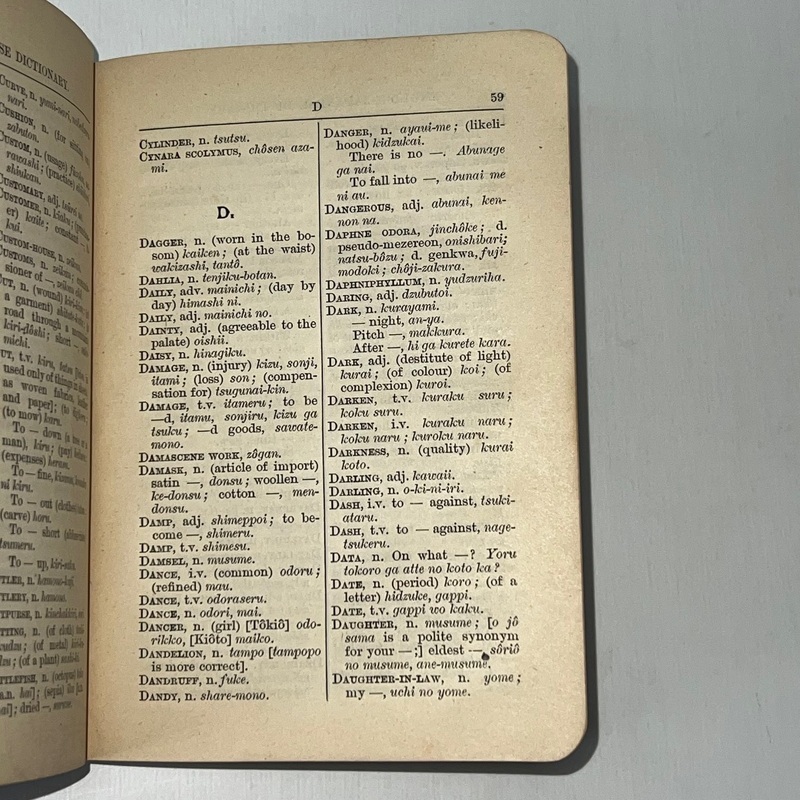 SE DICTIONARY.
CURVE, n.
nari.
CUSHION, n. (for
zabuton.
CUSTOM, n. (usage)
shiukan.
CUSTOMARY, adj.
CUSTOMER, n.
CUSTOM-HOUSE, n.
CUSTOMS, n.
sioner of —,
CUT, n. (wound)
a garment)
road through a
kiri-dôshi; short
michi.
CUT, t.v. kiru,
used only of things
as woven fabrics,
and paper];
(to mow) karu.
To — down (a
man), kiru;
(expenses)
To — fine,
ni kiru.
To — out (clothes)
(carve) horu.
To — short
To — up,
D
59
CYLINDER, n. tsutsu.
CYNARA SCOLYMUS, chôsen aza-
mi.
D.
DAGGER, n. (worn in the bo-
som) kaiken; (at the waist)
wakizashi, tantô.
DAHLIA, n. tenjiku-botan.
DAILY, adv. mainichi; (day by
day) himashi ni.
DAILY, adj. mainichi no.
DAINTY, adj. (agreeable to the
palate) oishii.
DAISY, n. hinagiku.
DAMAGE, n. (injury) kizu, sonji,
itami; (loss) son; (compen-
sation for) tsugunai-kin.
DAMAGE, t.v. itameru; to be
—d, itamu, sonjiru, kizu ga
tsuku; —d goods, sawate-
mono.
DAMASCENE WORK, zôgan.
DAMASK, n. (article of import)
satin —, donsu; woollen —,
ke-donsu; cotton —, men-
donsu.
DAMP, adj. shimeppoi; to be-
come —, shimeru.
DAMP, t.v. shimesu.
DAMSEL, n. musume.
DANCE, i.v. (common) odoru;
(refined) mau.
DANCE, t.v. odoraseru.
DANCE, n. odori, mai.
DANCER, n. (girl) [Tôkiô] odo-
rikko, [Kiôto] maiko.
DANDELION, n. tampo [tampopo
is more correct].
DANDRUFF, n. fuke.
DANDY, n. share-mono.
DANGER, n. ayaui-me; (likeli-
hood) kidzukai.
There is no —. Abunage
ga nai.
To fall into —, abunai me
ni au.
DANGEROUS, adj. abunai, ken-
non na.
DAPHNE ODORA, jinchôke; d.
pseudo-mezereon, onishibari;
natsu-bôzu; d. genkwa, fuji-
modoki; chôji-zakura.
DAPHNIPHYLLUM, n. yudzuriha.
DARING, adj. dzubutoi.
DARK, n. kurayami.
— night, an-ya.
Pitch —, makkura.
After —, hi ga kurete kara.
DARK, adj. (destitute of light)
kurai; (of colour) koi; (of
complexion) kuroi.
DARKEN, t.v. kuraku suru;
koku suru.
DARKEN, i.v. kuraku naru;
koku naru; kuroku naru.
DARKNESS, n. (quality) kurai
koto.
DARLING, adj. kawaii.
DARLING, n. o-ki-ni-iri.
DASH, i.v. to — against, tsuki-
ataru.
DASH, t.v. to — against, nage-
tsukeru.
DATA, n. On what —? Yoru
tokoro ga atte no koto ka?
DATE, n. (period) koro; (of a
letter) hidzuke, gappi.
DATE, t.v. gappi wo kaku.
DAUGHTER, n. musume; [o jô
sama is a polite synonym
for your —;] eldest —, sôriô
no musume, ane-musume.
DAUGHTER-IN-LAW, n. yome;
my —, uchi no yome.